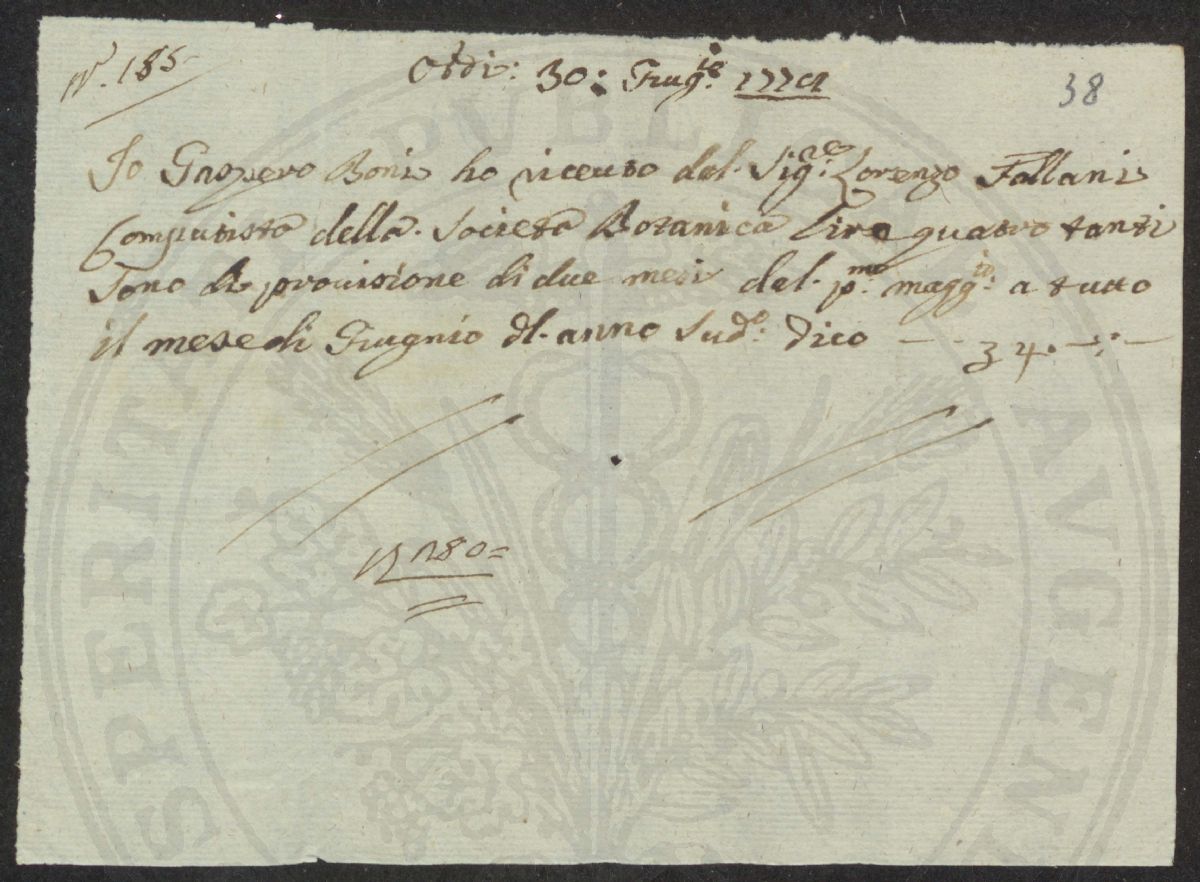 N.º 185
Addi: 30: Giug.io 1774
38
Io Gaspero Boni ho riceuto dal. Sig.re Lorenzo Fallani
Computista della Società Botanica Lire quatro tanti
sono di prouisione di due mesi dal. p.mo magg.io a tutto
il mese di Giugnio dl. anno Sud.o Dico — 4. —:—
N 180=
PROSPERITATI PVBLICAE AVGEN